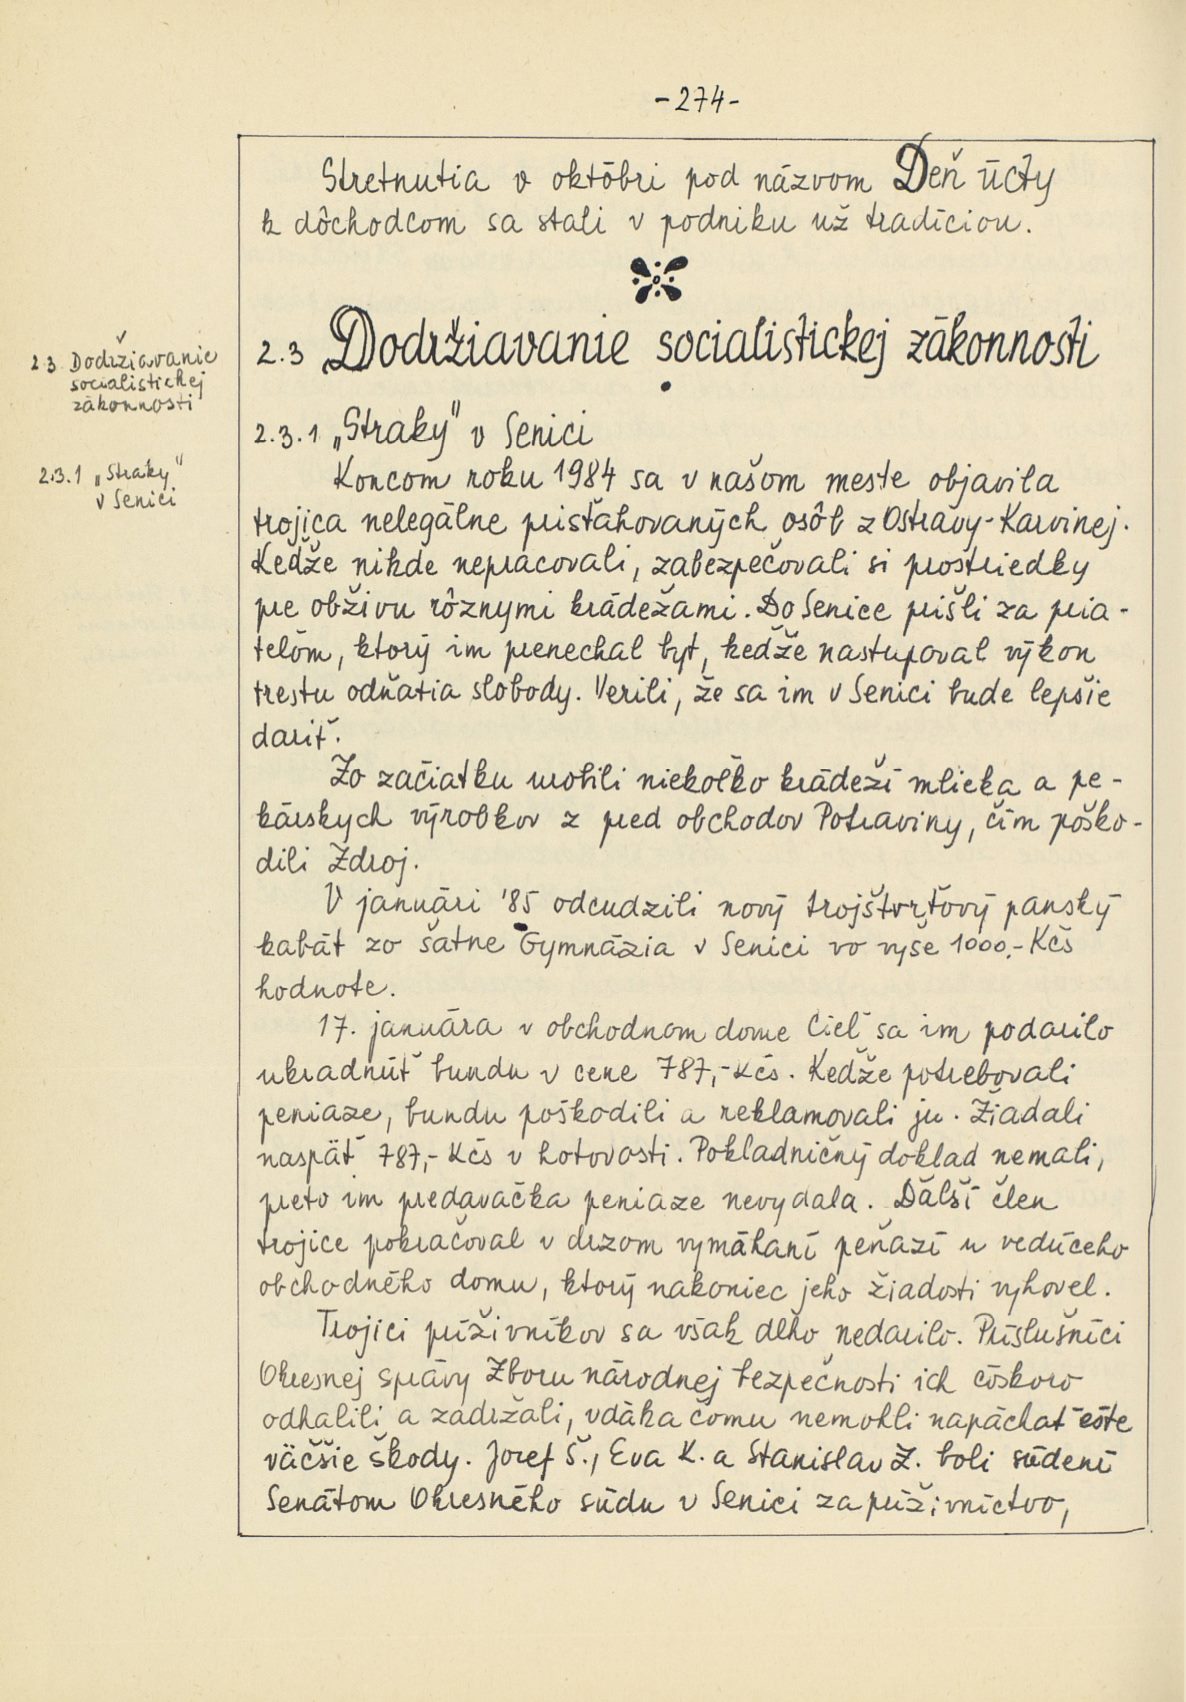 -274-
Stretnutia v októbri pod názvom Deň úcty
k dôchodcom sa stali v podniku už tradíciou.
2.3 Dodržiavanie socialistickej zákonnosti
2.3 Dodržiavanie
socialistickej
zákonnosti
2.3.1 „Straky" v Senici
2.3.1 „Straky"
v Senici
Koncom roku 1984 sa v našom meste objavila
trojica nelegálne prisťahovaných osôb z Ostravy-Karvinej.
Keďže nikde nepracovali, zabezpečovali si prostriedky
pre obživu rôznymi krádežami. Do Senice prišli za pria-
teľom, ktorý im prenechal byt, keďže nastupoval výkon
trestu odňatia slobody. Verili, že sa im v Senici bude lepšie
dariť.
Zo začiatku urobili niekoľko krádeží mlieka a pe-
kárskych výrobkov z pred obchodov Potraviny, čím poško-
dili Zdroj.
V januári '85 odcudzili nový trojštvrťový panský
kabát zo šatne Gymnázia v Senici vo vyše 1000,- Kčs
hodnote.
17. januára v obchodnom dome Cieľ sa im podarilo
ukradnúť bundu v cene 787,- Kčs. Keďže potrebovali
peniaze, bundu poškodili a reklamovali ju. Žiadali
naspäť 787,- Kčs v hotovosti. Pokladničný doklad nemali,
preto im predavačka peniaze nevydala. Ďalší člen
trojice pokračoval v drzom vymáhaní peňazí u vedúceho
obchodného domu, ktorý nakoniec jeho žiadosti vyhovel.
Trojici príživníkov sa však dlho nedarilo. Príslušníci
Okresnej správy Zboru národnej bezpečnosti ich čoskoro
odhalili a zadržali, vďaka čomu nemohli napáchať ešte
väčšie škody. Jozef Š., Eva K. a Stanislav Z. boli súdení
Senátom Okresného súdu v Senici za príživníctvo,